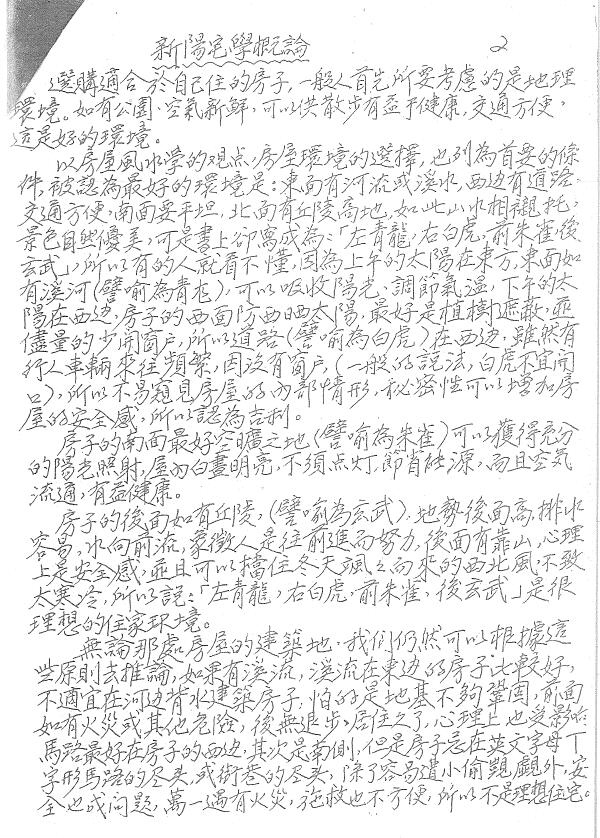 新陽宅學概論 2
選購適合於自己住的房子,一般人首先所要考慮的是地理
環境。如有公園、空氣新鮮,可以供散步有益于健康,交通方便,
這是好的環境。
以房屋風水學的观点,房屋環境的選擇,也列為首要的條
件,被認為最好的環境是:東面有河流或溪水,西边有道路,
交通方便,南面要平坦,北面有丘陵高地,如此山水相襯托,
景色自然優美,可是書上卻寫成為:「左青龍,右白虎,前朱雀,後
玄武」,所以有的人就看不懂,因為上午的太陽在東方,東面如
有溪河(譬喻為青龙),可以吸收陽光、調節氣溫,下午的太
陽在西边,房子的西面防西晒太陽,最好是植樹遮蔽,並
儘量的少開窗戶,所以道路(譬喻為白虎)在西边,雖然有
行人車輛來往頻繁,因沒有窗戶,(一般的說法,白虎不宜開
口),所以不易窺見房屋的內部情形,秘密性可以增加房
屋的安全感,所以認為吉利。
房子的南面最好空曠之地(譬喻為朱雀)可以獲得充分
的陽光照射,屋內白晝明亮,不須点灯,節省能源,而且空気
流通,有益健康。
房子的後面如有丘陵,(譬喻為玄武),地勢後面高,排水
容易,水向前流,象徵人是往前進而努力,後面有靠山,心理
上是安全感,並且可以擋住冬天颯々而來的西北風,不致
太寒冷,所以說:「左青龍,右白虎,前朱雀,後玄武」是很
理想的住家环境。
無論那處房屋的建築地,我們仍然可以根據這
些原則去推論,如果有溪流,溪流在東边的房子比較好,
不適宜在河边背水建築房子,怕的是地基不夠鞏固,前面
如有火災或其他危險,後無退步,居住久了,心理上也受影响,
馬路最好在房子的西边,其次是南側,但是房子忌在英文字母丁
字形馬路的尽头,或街巷的尽头,除了容易遭小偷覬覦外,安
全也成问題,萬一遇有火災,施救也不方便,所以不是理想住宅。